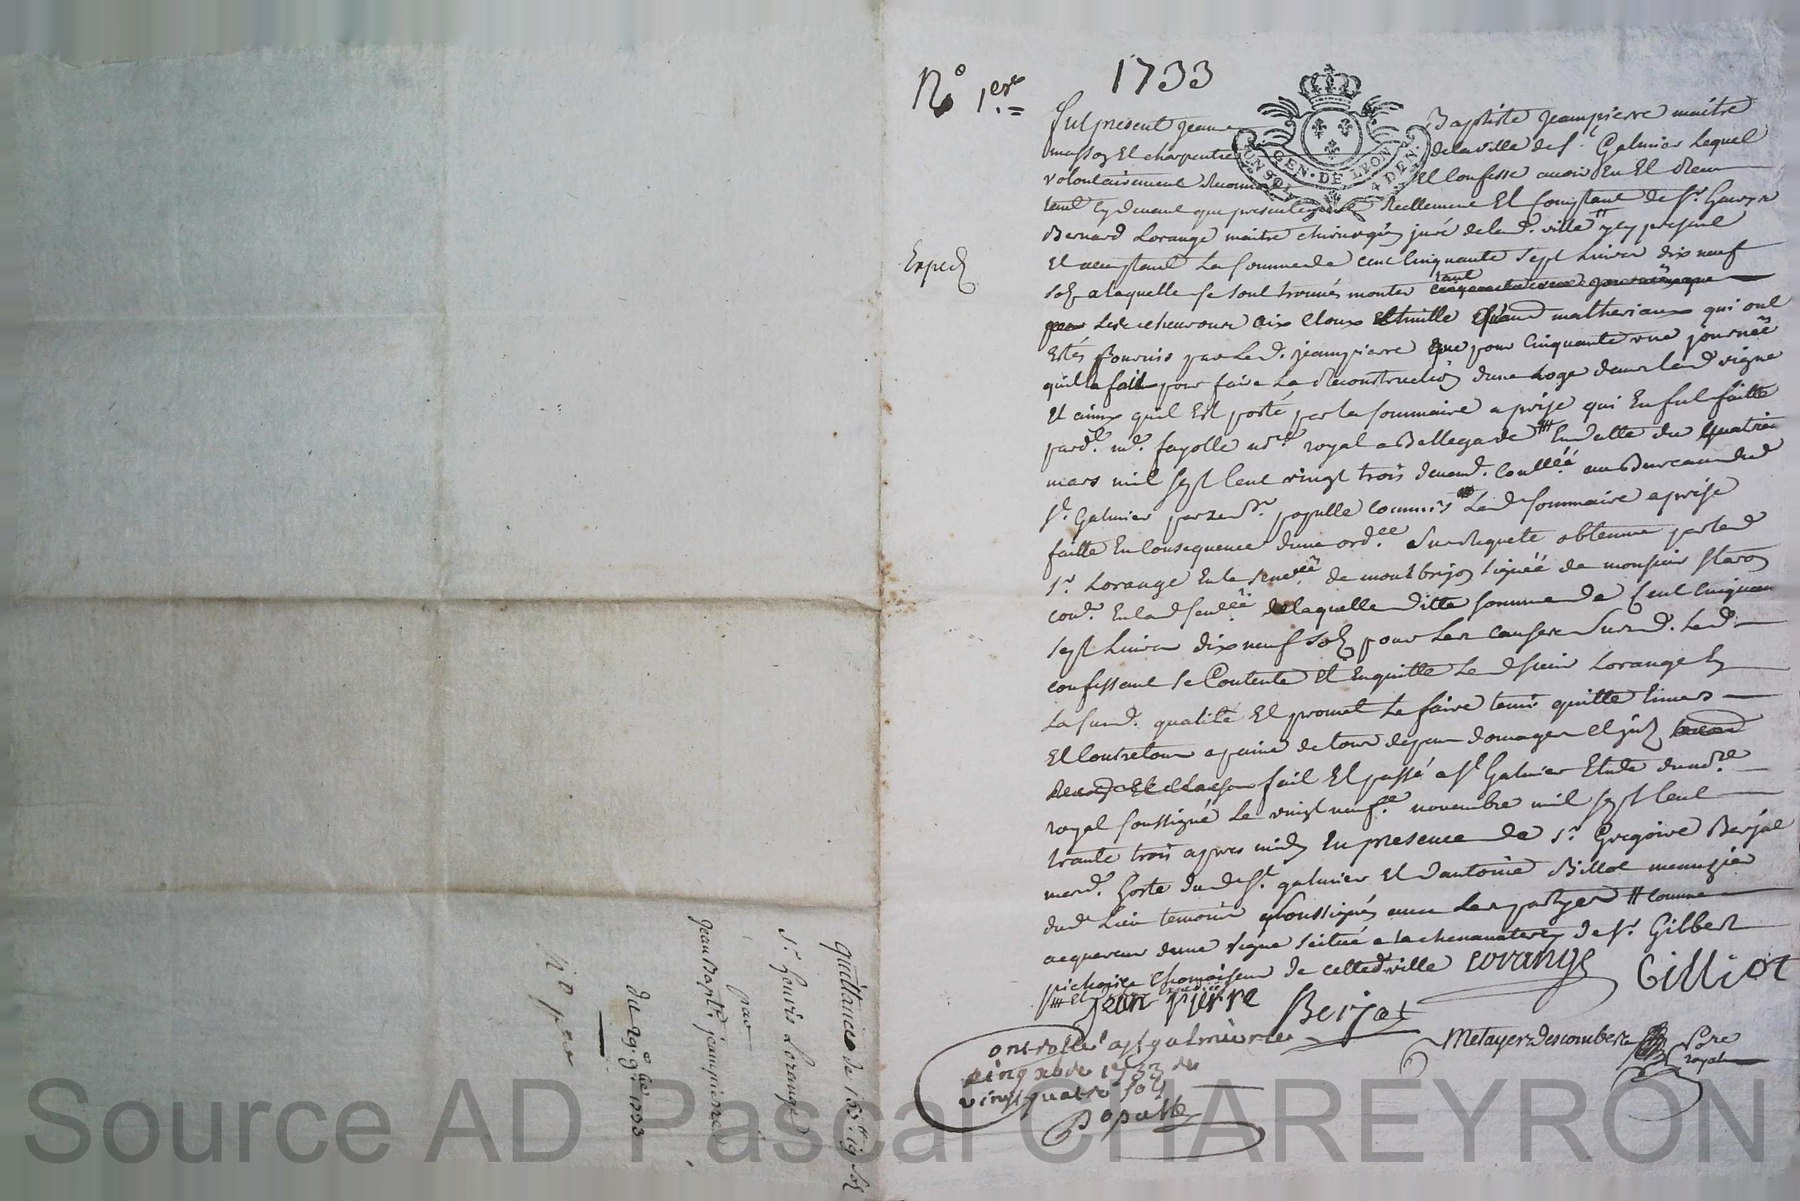 N° 1ere
1733
fut present Jean Baptiste Jeampierre maitre
masson Et charpentier de la ville de St. Galmier Lequel
volontairement Et Confesse avoir Eu Et Receu
tant cydevant que presentement Reellement Et Comptant de Sr. Henrys
Bernard Lorange maitre chirurgien juré de lad. ville # y present
Et acceptant La Somme de cent Cinquante Sept Livres dix neuf
Expedié
Solz a laquelle Se Sont trouvés monter tant
Les aix Cloux thuille Et autres matheriaux qui ont
Estés fournis par Led. Jeampierre que pour Cinquante une journées
quil a fait pour faire La Reconstruction dune Loge dans lad vigne
Et ainsy quil Est porté par la Sommaire aprise qui En fut faitte
pard. me. fayolle nore. royal a Bellegarde # En datte du quatrie
mars mil Sept Cent vingt trois au Bureau dud
St. Galmier par Populle Commis Lad Sommaire aprise
faitte En Consequence dune ordce Sur Requete obtenue par led
Sr. Lorange En la Senechée de montbrison Signée de monsieur Staron
de laquelle ditte Somme de Cent Cinquan
Sept Livres dix neuf Solz pour Les causes Susd. Led.
confessant Se Contente Et En quitte Led Sieur Lorange En
La Susd. qualité Et promet Le faire tenir quitte Envers
Et Contre tous a peine de tous depens domages
fait Et passé a St Galmier Etude du nore.
royal Soussigné Le vingt neufe. novembre mil Sept Cent
trante trois apres midy En presence de Sr. Gregoire Berjat
march. hoste dud St. galmier Et d'antoine Billiot menuzier
dud Lieu temoins Soussignés avec Les partyes # comme
acquereur dune vigne Scitué a la chenanaterey de Sr. Gilbert
pichoire de cette d ville
Lorange
Gilliot
Jean Pierre
Berjat
Metayer Descombes
Nore
royal
Controllé a St galmier le
cinq xbre 1733 Rs
vingt quatre Sols
Populle
quittance de 157ll 19 Sols
Sr. Henris Lorange
par
Jean Bapte. jeampierre
du 29e. 9bre 1733